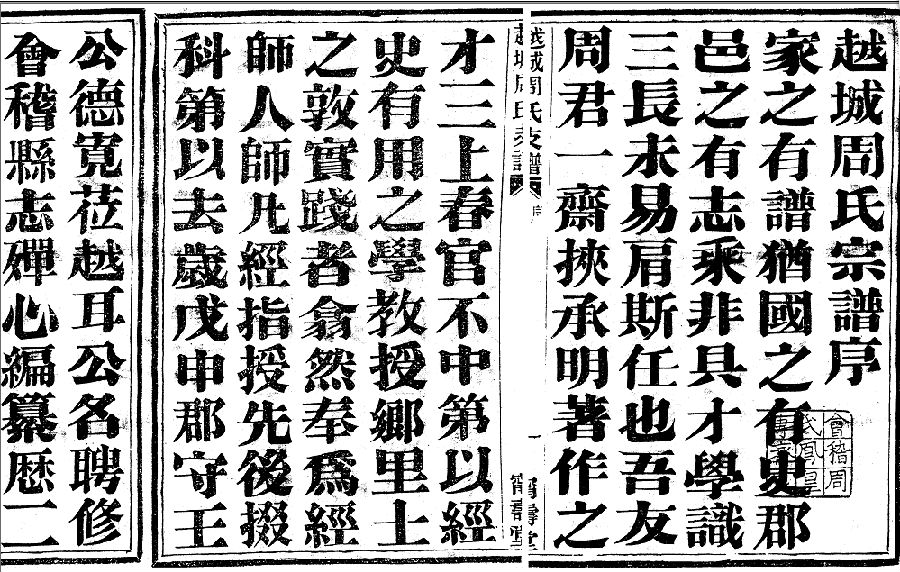 越城周氏宗譜序
家之有譜猶國之有史郡
邑之有志乘非具才學識
三長未易肩斯任也吾友
周君一齋挾承明著作之
越城周氏支譜
序
一
寧壽堂
才三上春官不中第以經
史有用之學教授鄉里士
之敦實踐者翕然奉爲經
師人師凡經指授先後掇
科第以去歲戊申郡守王
公德寬莅越耳公名聘修
會稽縣志殫心編纂歷二